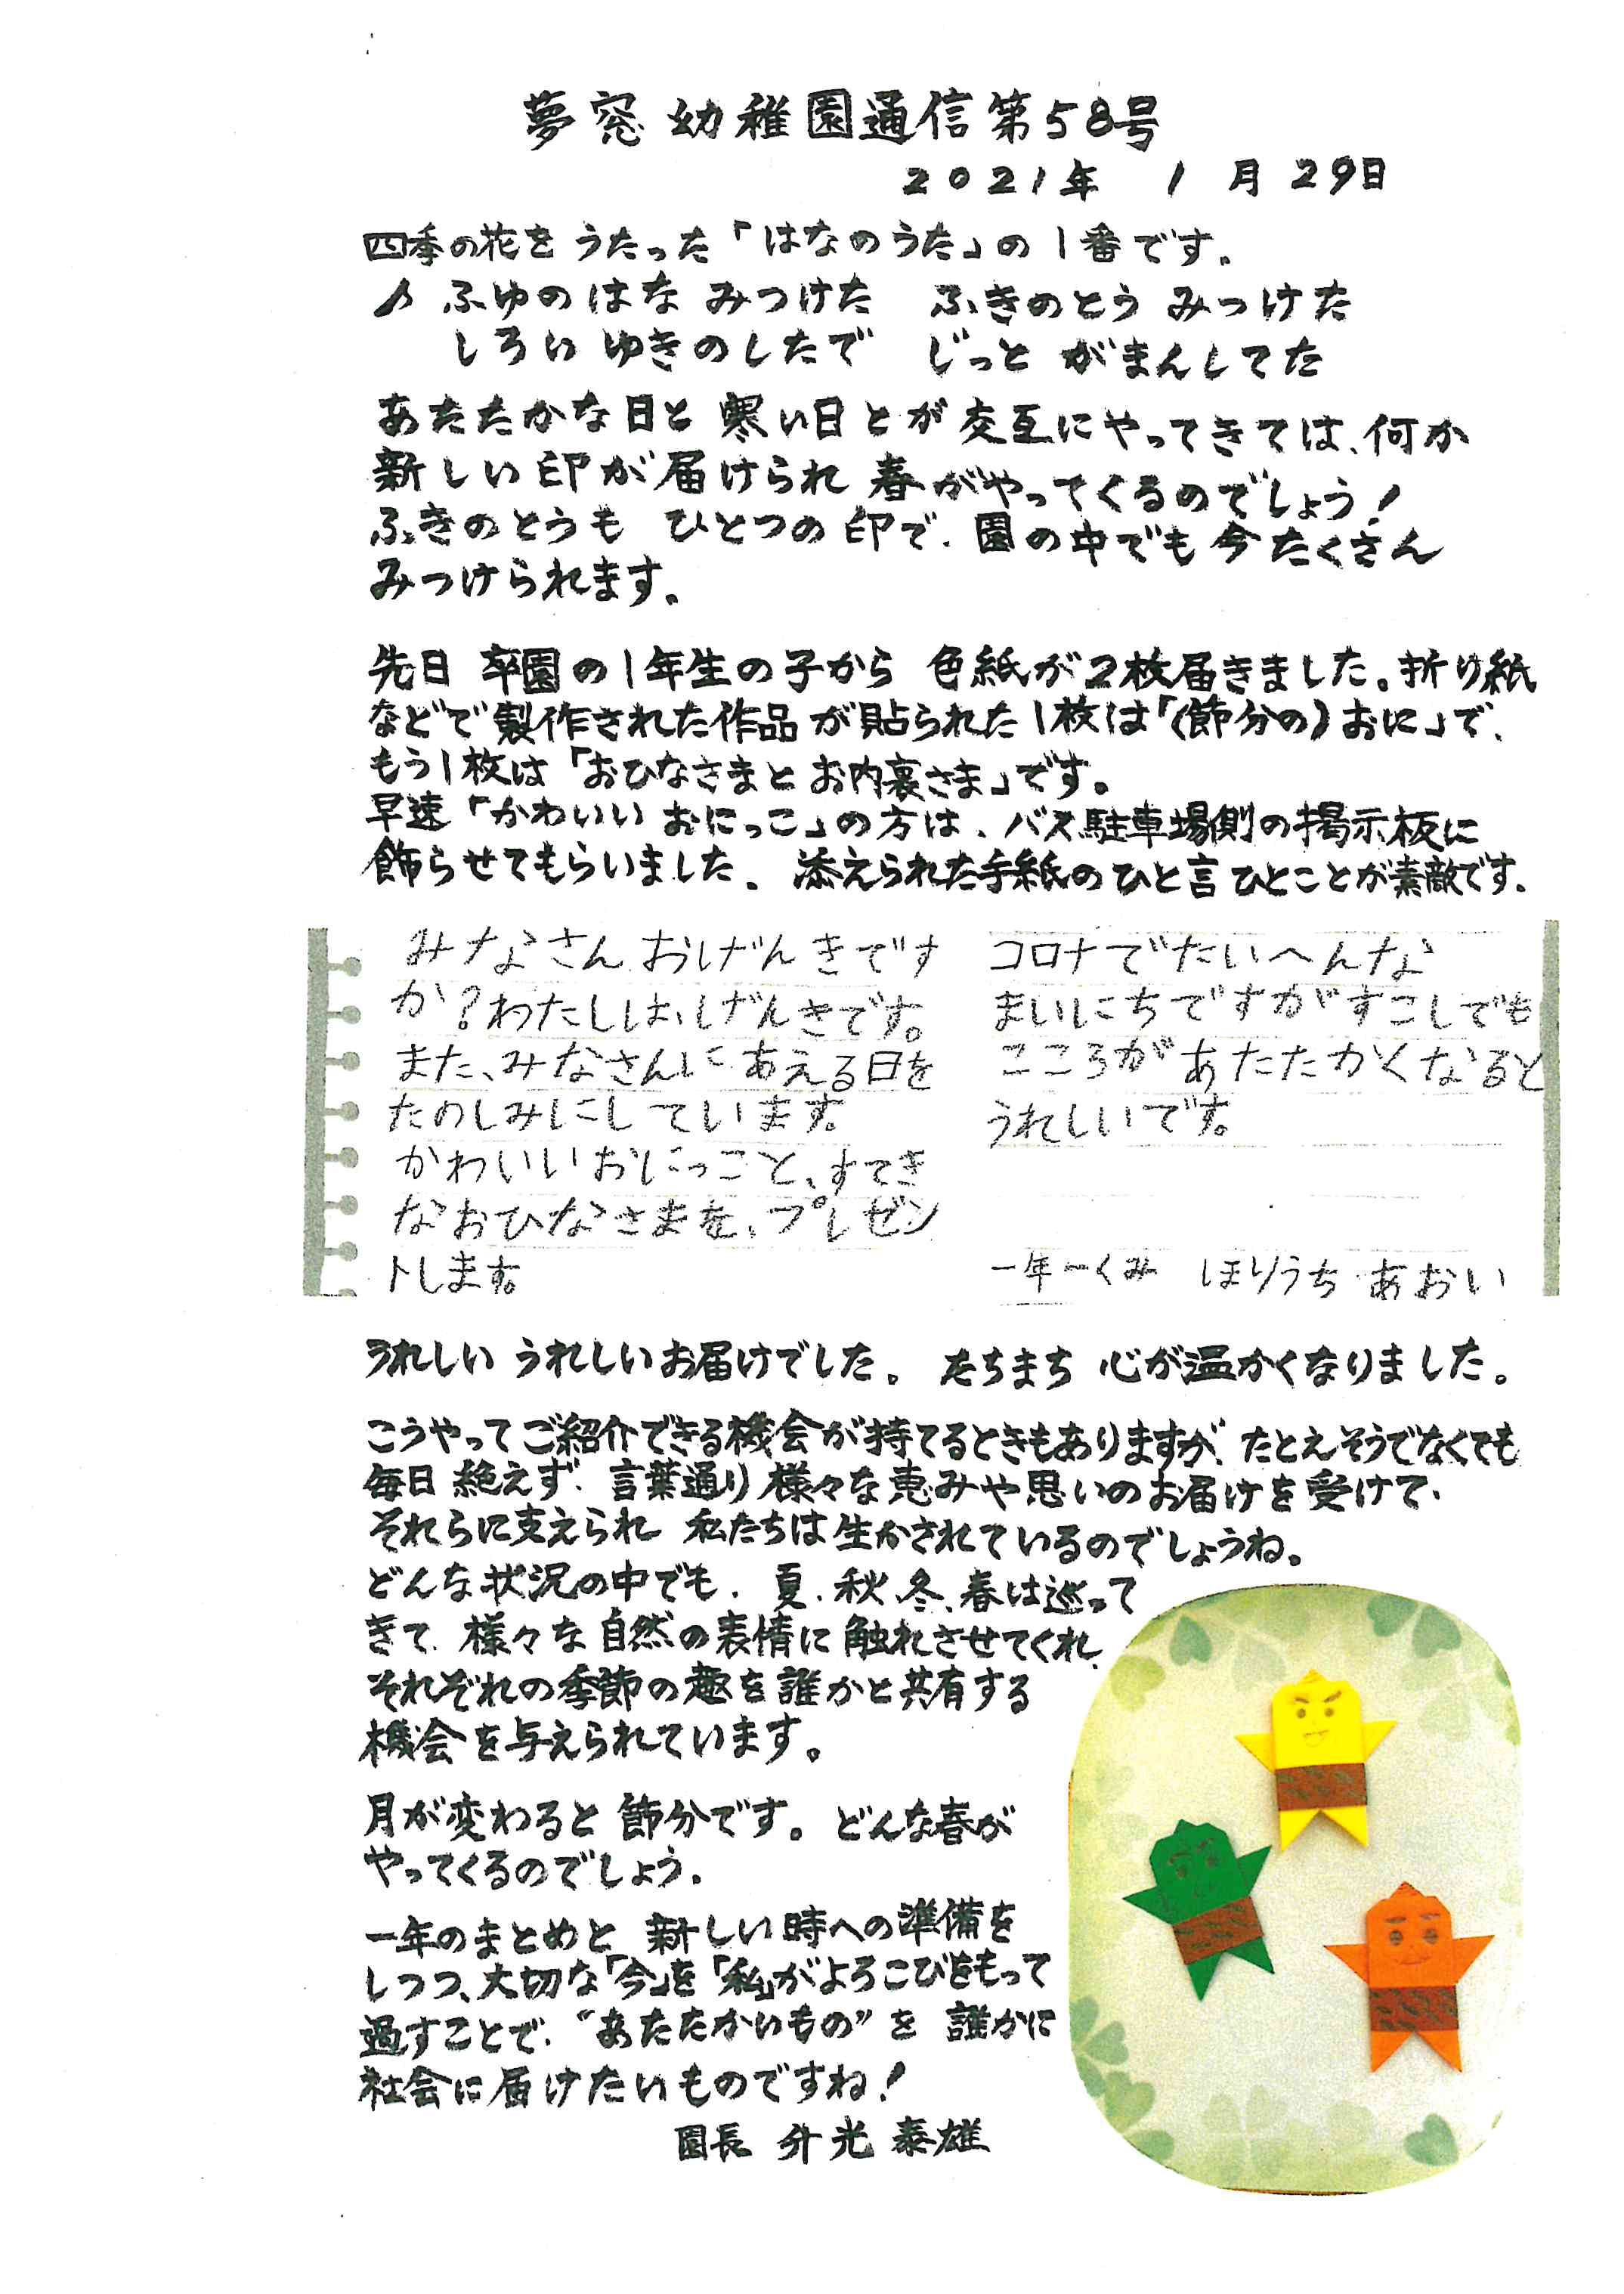 夢窓幼稚園通信第58号
2021年 1月29日
四季の花をうたった「はなのうた」の1番です。
♪ ふゆのはな みつけた ふきのとう みつけた
しろい ゆきのしたで じっと がまんしてた
あたたかな日と 寒い日とが 交互にやってきては、何か
新しい印が届けられ 春がやってくるのでしょう!
ふきのとうも ひとつの印で、園の中でも今たくさん
みつけられます。
先日 卒園の1年生の子から 色紙が2枚届きました。折り紙
などで製作された作品が貼られた1枚は「(節分の)おに」で、
もう1枚は「おひなさまと お内裏さま」です。
早速「かわいい おにっこ」の方は、バス駐車場側の掲示板に
飾らせてもらいました。 添えられた手紙のひと言ひとことが素敵です。
みなさん、おげんきです
か?わたしは、げんきです。
また、みなさんに あえる日を
たのしみにしています。
かわいいおにっこと、すてき
なおひなさまを、プレゼン
トします。
コロナでたいへんな
まいにちですがすこしでも
こころがあたたかくなると
うれしいです。
一年一くみ ほりうち あおい
うれしい うれしいお届けでした。 たちまち 心が温かくなりました。
こうやってご紹介できる機会が持てるときもありますが、たとえそうでなくても
毎日 絶えず、言葉通り様々な恵みや思いのお届けを受けて、
それらに支えられ 私たちは生かされているのでしょうね。
どんな状況の中でも、夏、秋、冬、春は巡って
きて、様々な自然の表情に触れさせてくれ、
それぞれの季節の趣を誰かと共有する
機会を与えられています。
月が変わると 節分です。どんな春が
やってくるのでしょう。
一年のまとめと 新しい時への準備を
しつつ、大切な「今」を「私」がよろこびをもって
過すことで、“あたたかいもの”を 誰かに
社会に届けたいものですね!
園長 升光 泰雄